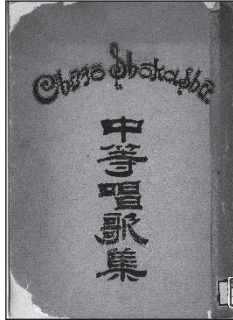 Chūtō Shōkashū
中等唱歌集